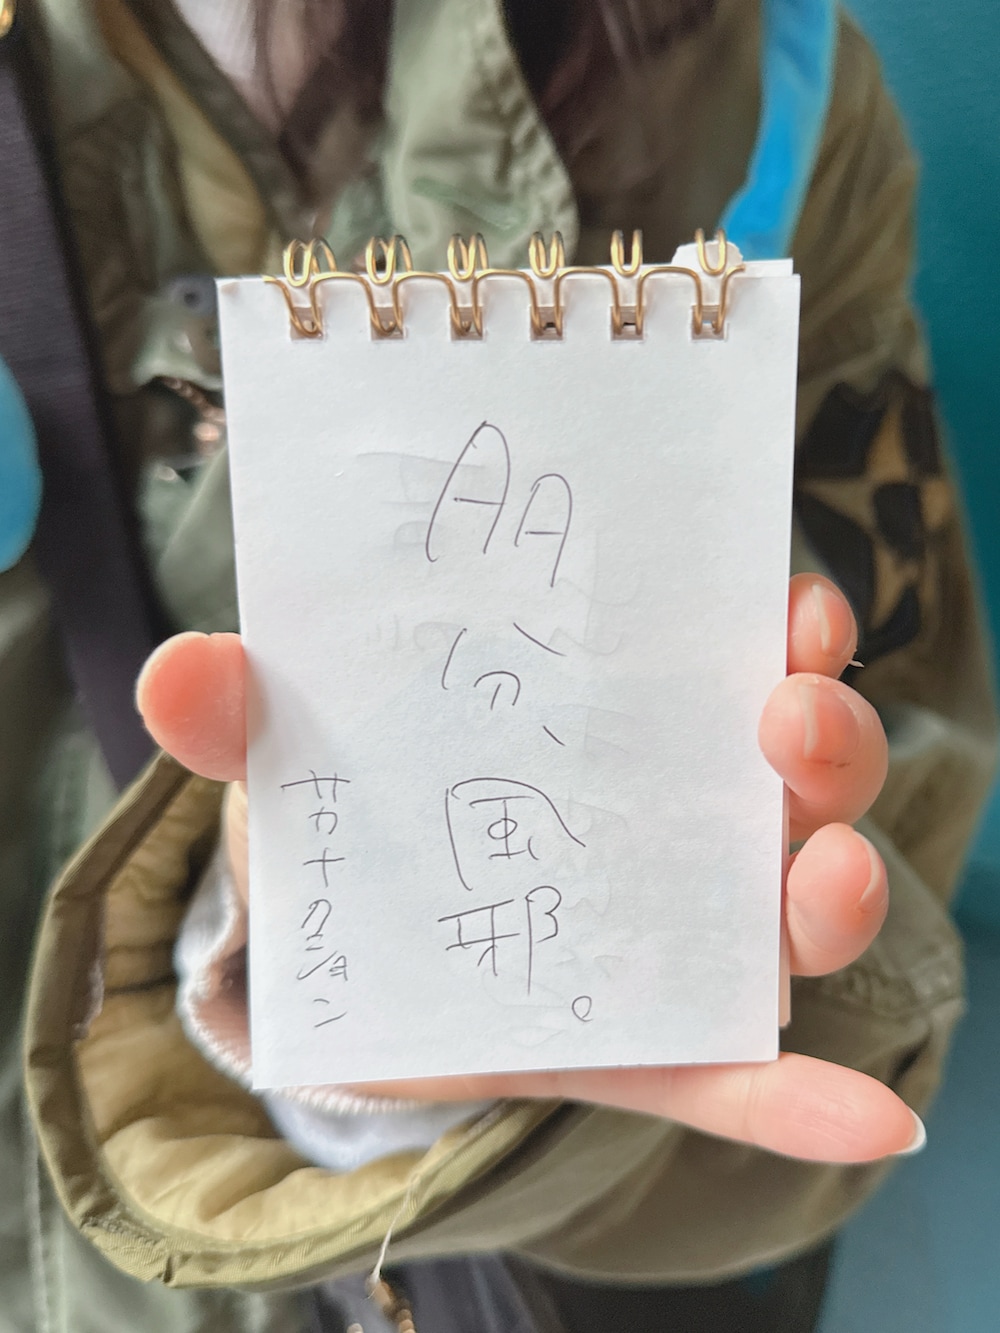 AA
分、
風邪。
サカナクション